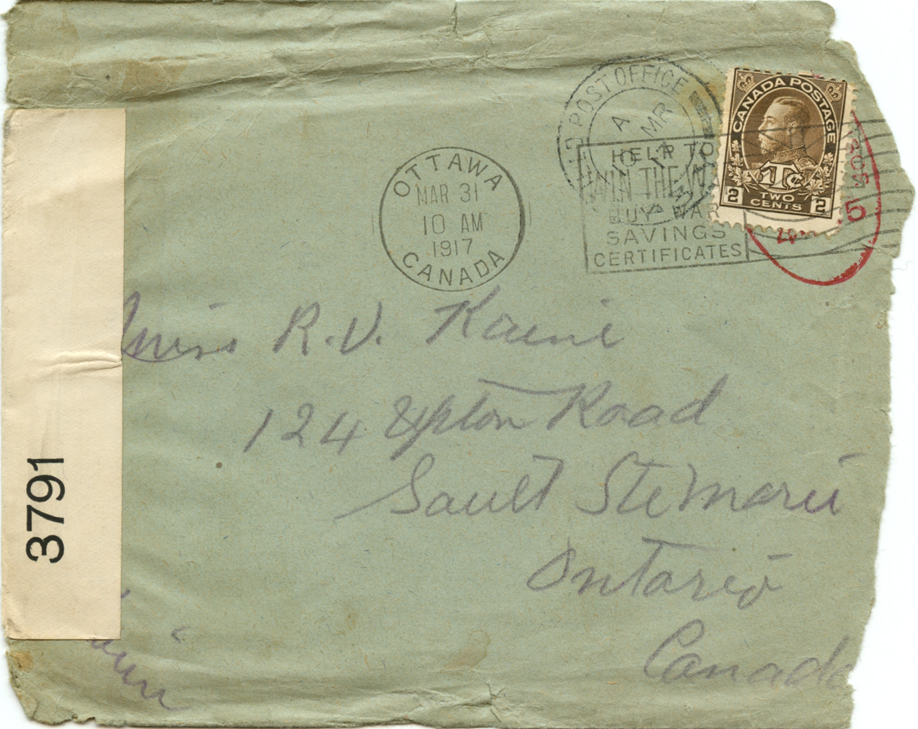 POST OFFICE
A
MR
HELP TO
WIN THE
BUY WAR
SAVINGS
CERTIFICATES
CANADA POSTAGE
1Tc
2 TWO CENTS 2
5
OTTAWA
MAR 31
10 AM
1917
CANADA
Miss R.V. Kaine
124 Upton Road
Sault Ste Marie
Ontario
Canada
3791